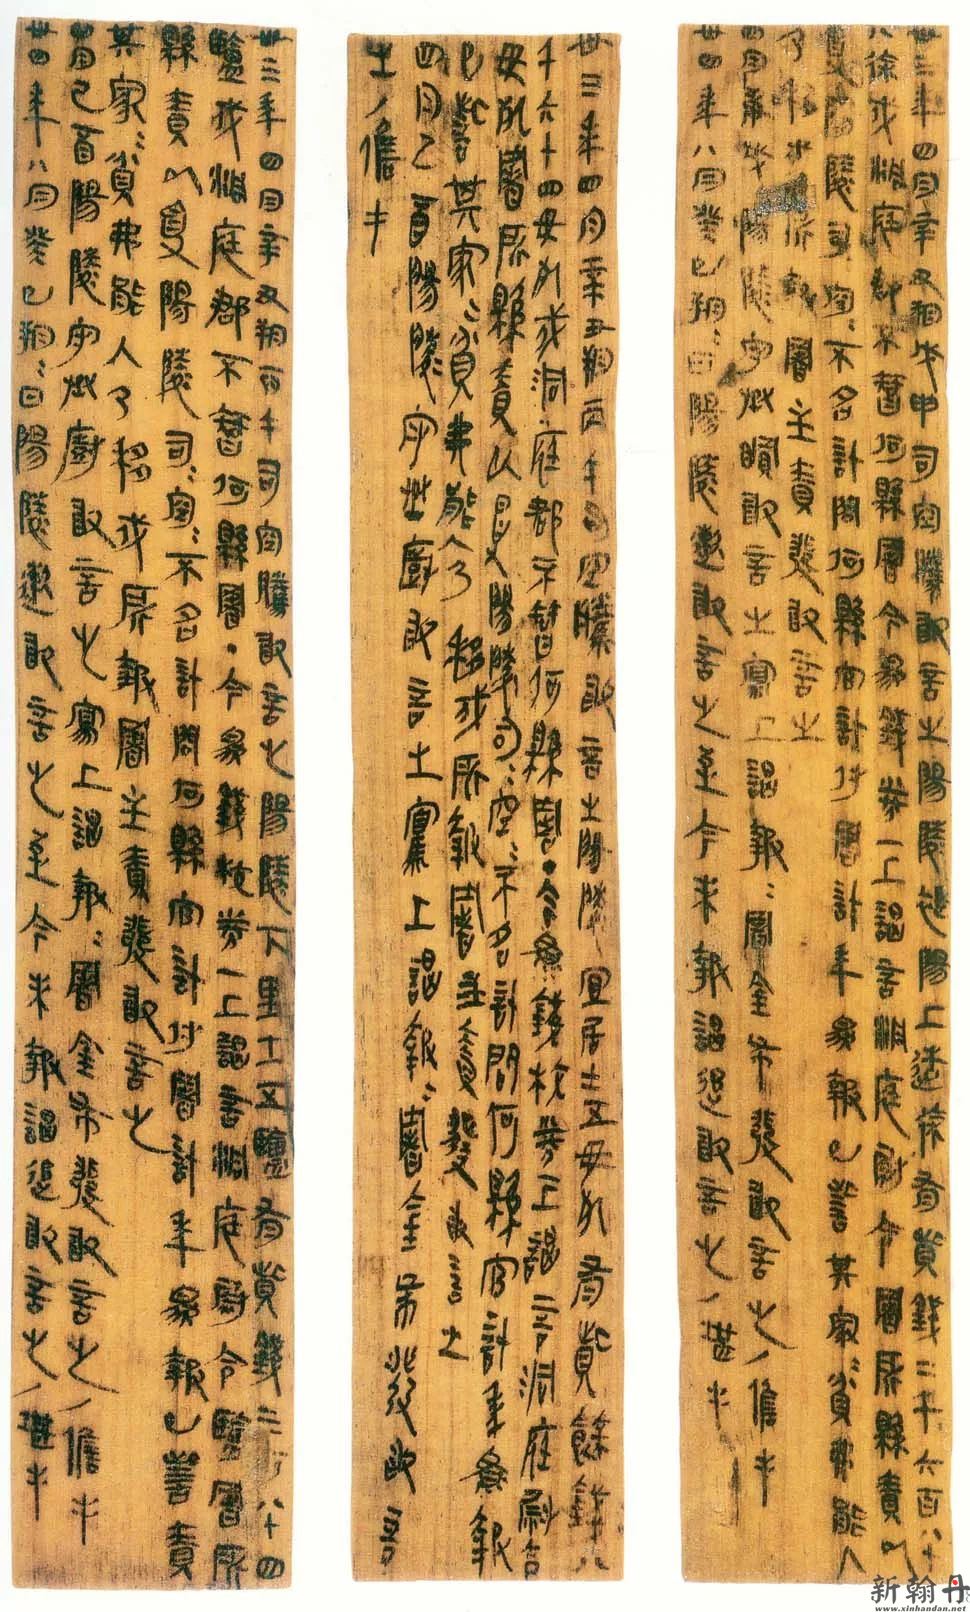 卅三年四月辛丑朔戊申司空騰敢言之陽陵逆陽上造徐有貲錢二千六百八十
八徐戍洞庭郡不智何縣署今為錢券一上謁言洞庭尉令署所縣責以
受陽陵司空=不名計問何縣官計付署計年為報已訾其家=貧弗能入
乃移戍所報署主責發敢言之
四月庚戌陽陵守丞瞫敢言之寫上謁報=署金布發敢言之/儋手
卅四年八月癸巳朔=日陽陵遬敢言之至今未報謁追敢言之/堪手
卅三年四月辛丑朔丙午司空騰敢言之陽陵宜居士五毋死有貲餘錢八
千六十四毋死戍洞庭郡不智何縣署·今為錢校券一上謁言洞庭尉令
毋死署所縣責以受陽陵司=空=不名計問何縣官計年為報
已訾其家=貧弗能入乃移戍所報署主責發敢言之
四月己酉陽陵守丞廚敢言之寫上謁報=署金布發敢言
之/儋手
卅三年四月辛丑朔丙午司空騰敢言之陽陵下里士五鹽有貲錢三百八十四
鹽戍洞庭郡不智何縣署·今為錢校券一上謁言洞庭尉令鹽署所
縣責以受陽陵司=空=不名計問何縣官計付署計年為報已訾責
其家=貧弗能入乃移戍所報署主責發敢言之
四月己酉陽陵守丞廚敢言之寫上謁報=署金布發敢言之/儋手
卅四年八月癸巳朔=日陽陵遬敢言之至今未報謁追敢言之/堪手
新翰丹
www.xinhandan.net